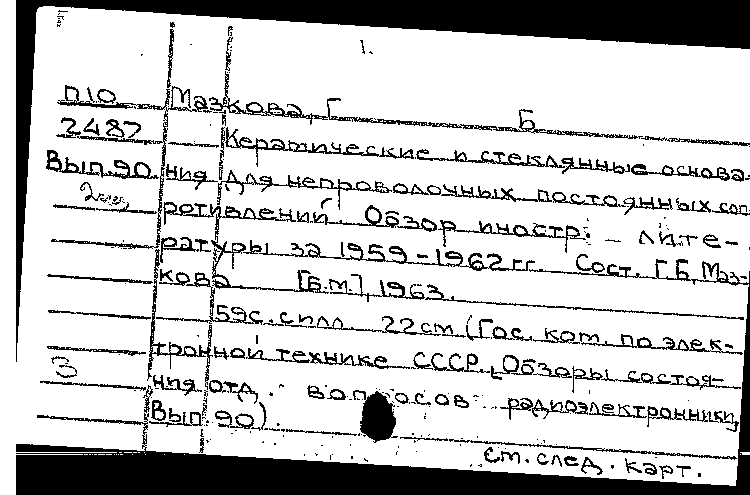 1.
П10 Мазкова, Г Б
2487 Керамические и стеклянные основа-
Вып.90 ния для непроволочных постоянных соп-
2 экз ротивлений. Обзор иностр. лите-
ратуры за 1959-1962 гг. Сост. Г.Б. Маз-
кова. [Б.м.], 1963.
59с. с илл. 22см (Гос. ком. по элек-
тронной технике СССР. Обзоры состоя-
З ния отд. вопросов радиоэлектронники,
Вып. 90).
см. след. карт.